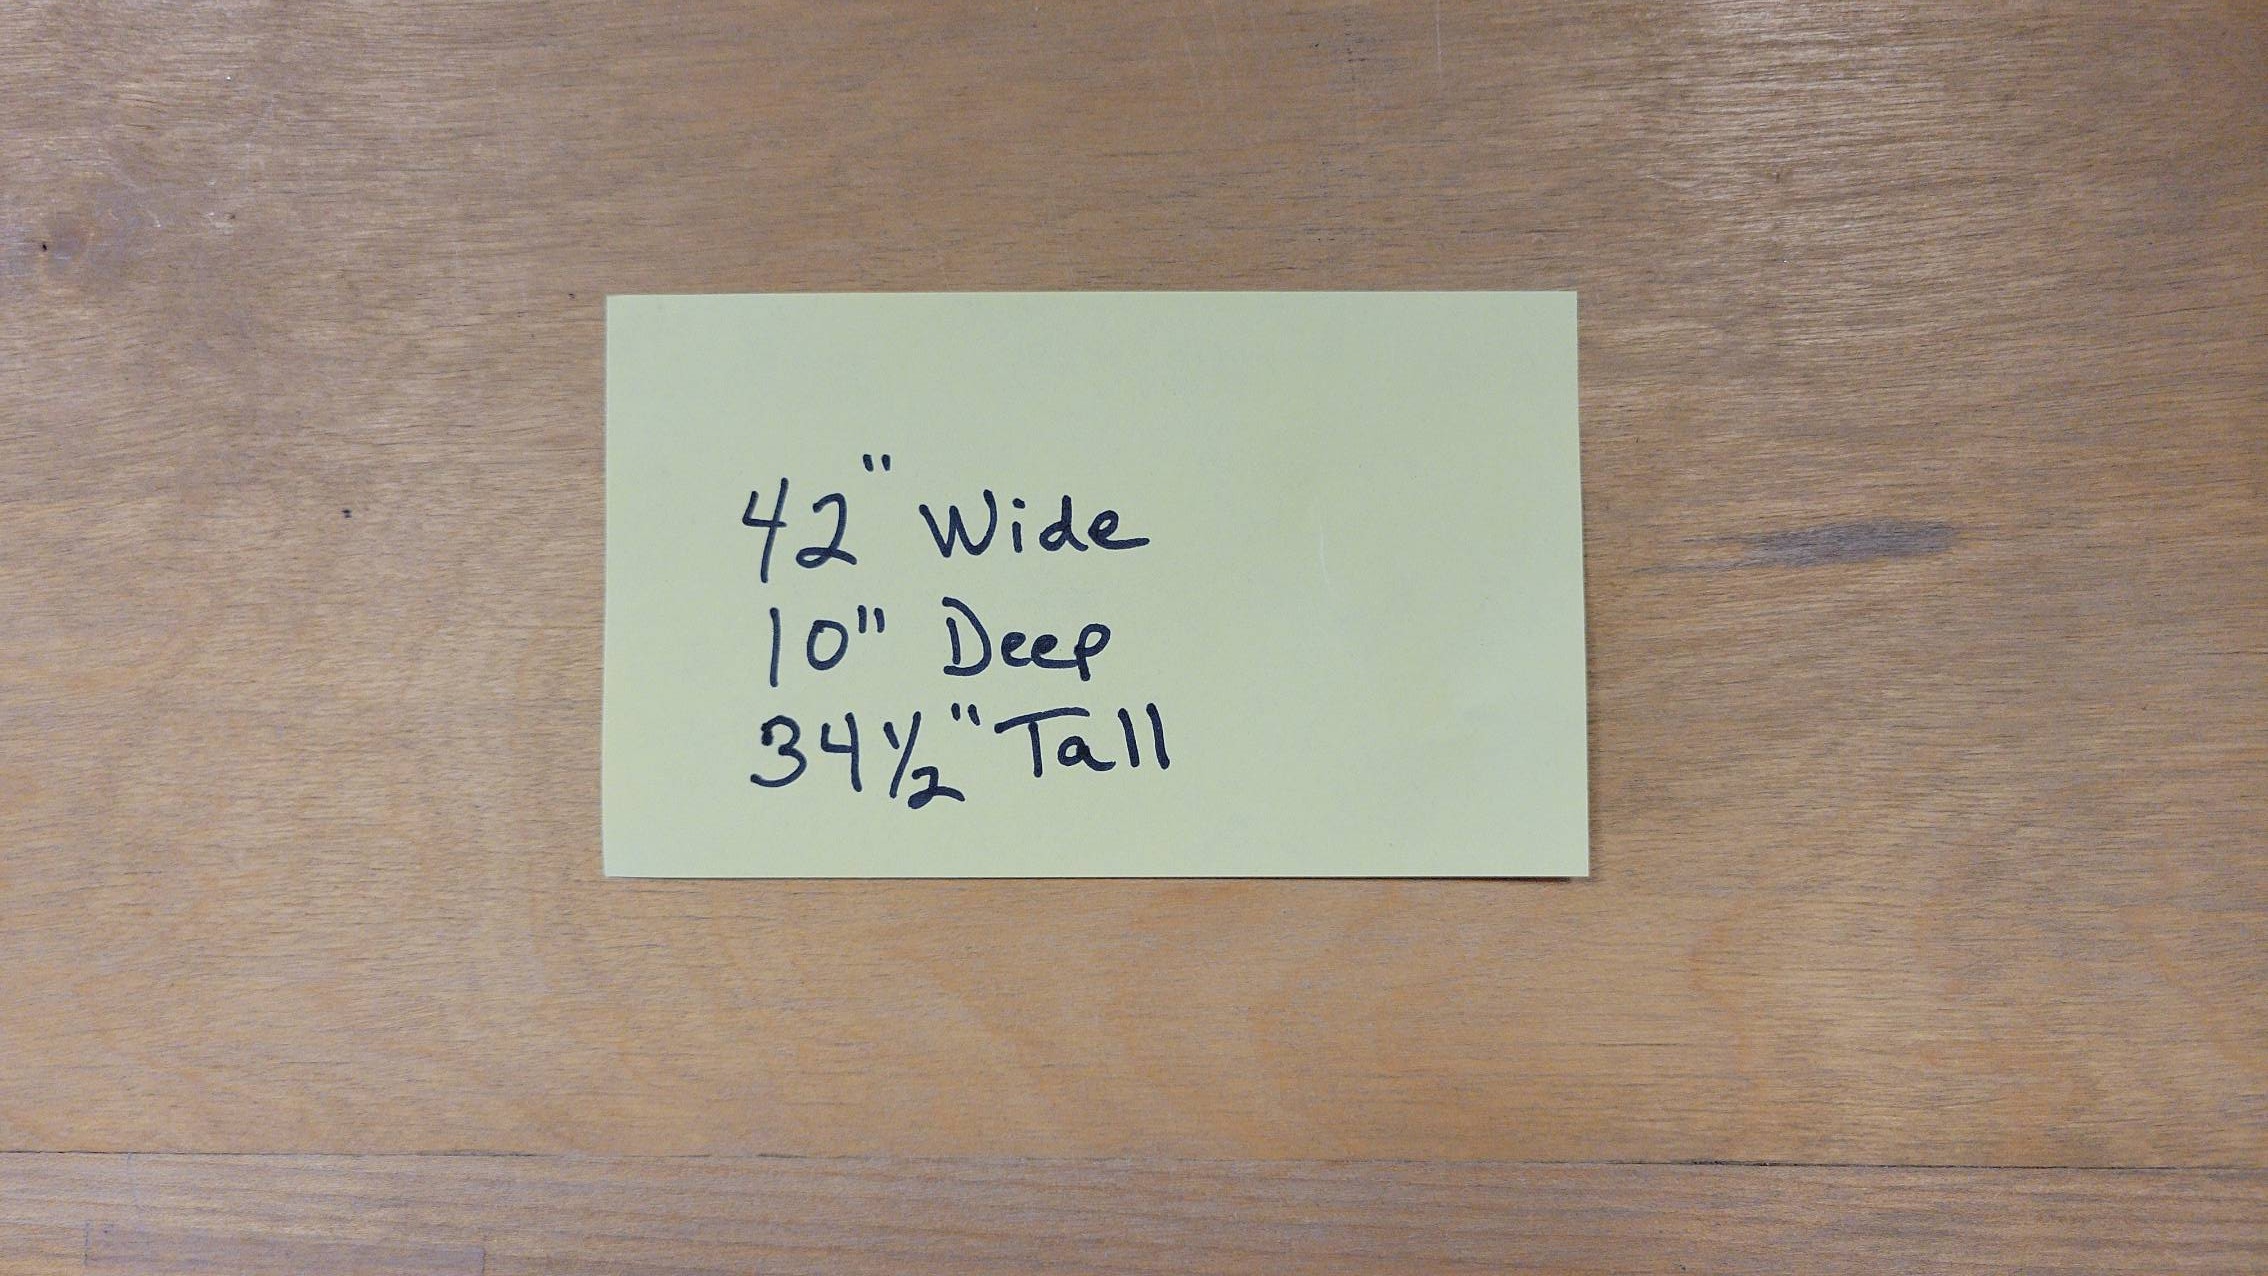 42" Wide
10" Deep
34 1/2" Tall